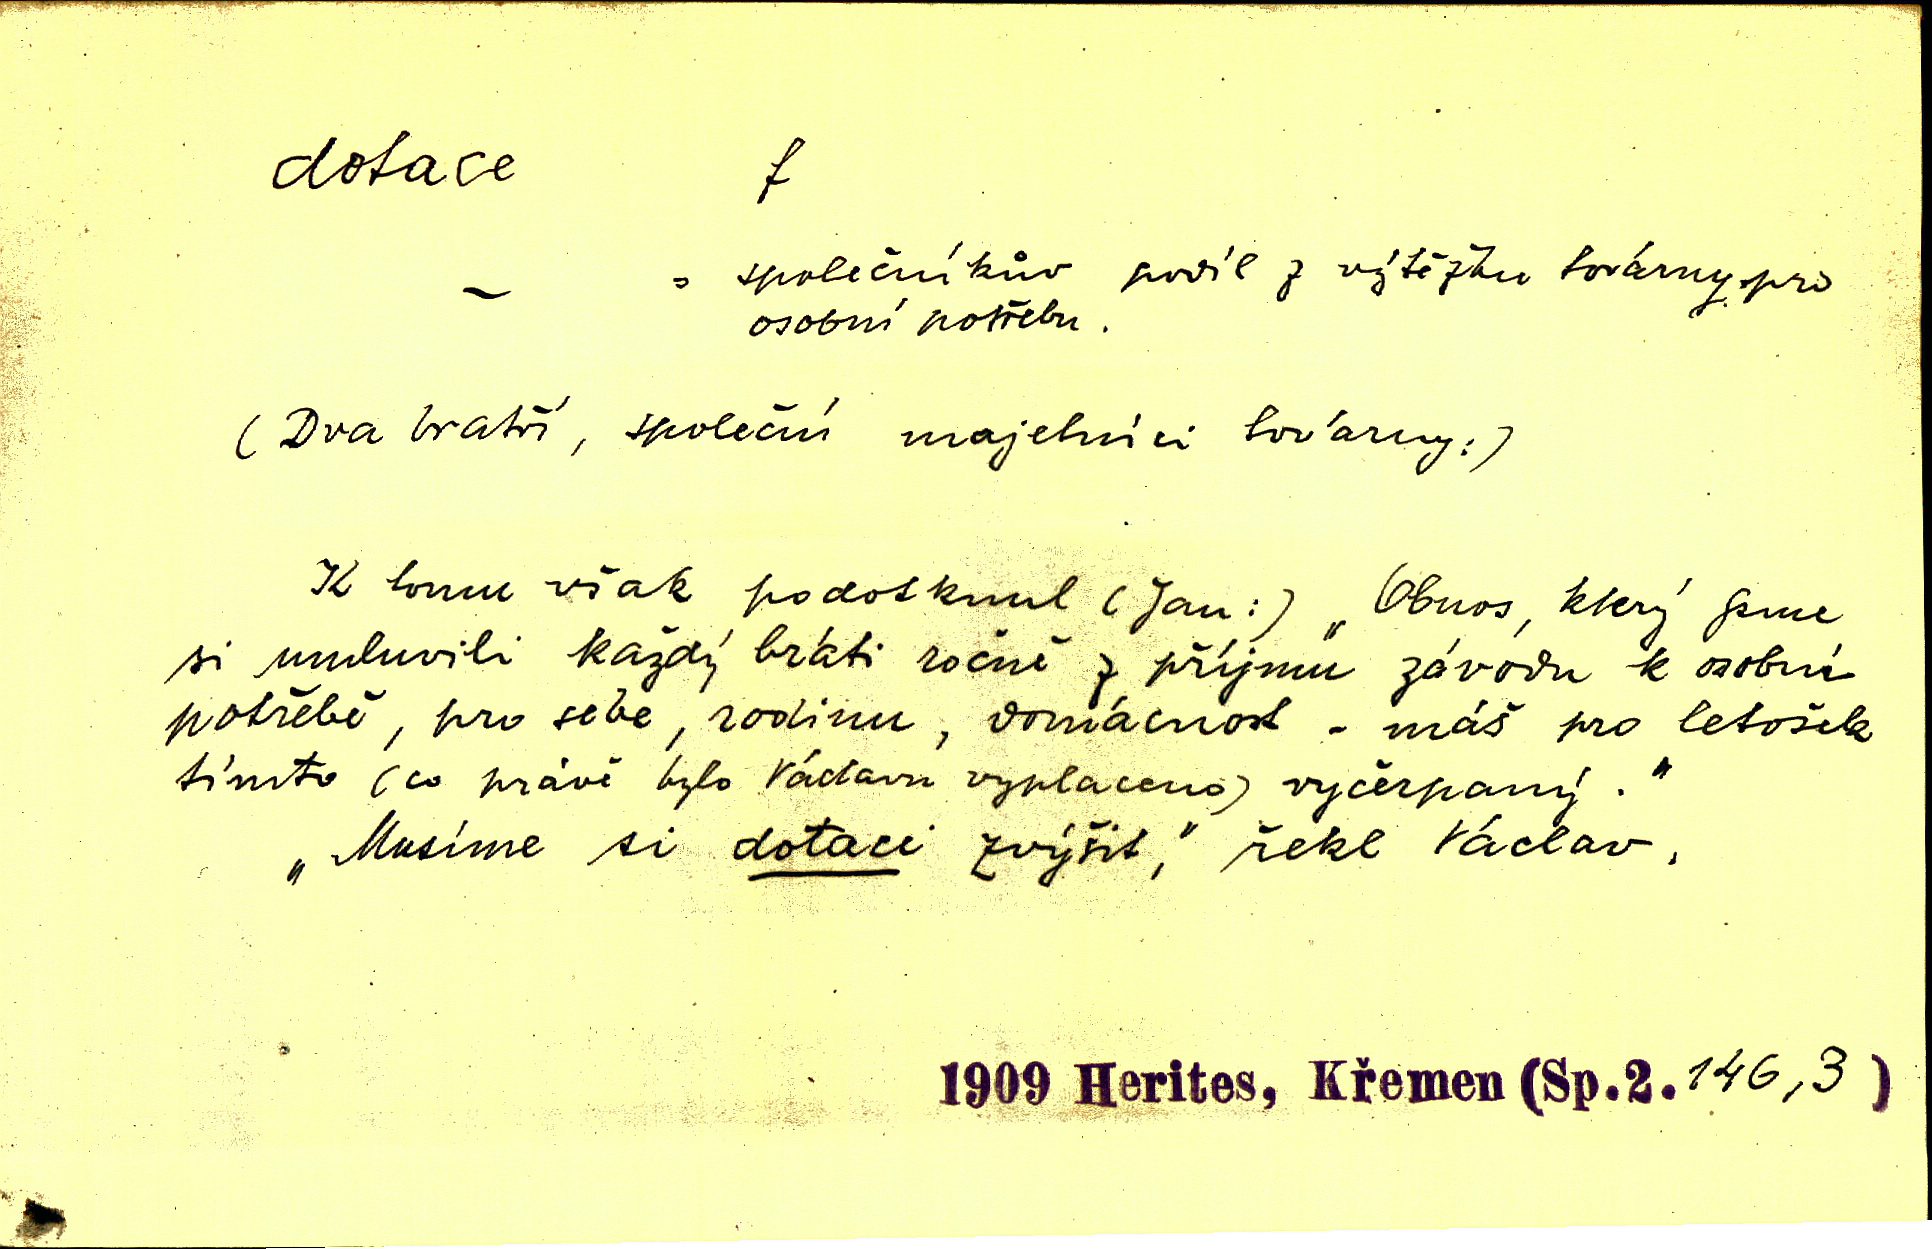 dotace f
– = společníkův podíl z výtěžku továrny pro
osobní potřebu.
(Dva bratří, společní majetníci továrny:)
K tomu však podotknul (Jan:) „Obnos, který jsme
si umluvili každý bráti ročně z příjmu závodu k osobní
potřebě, pro sebe, rodinu, domácnost - máš pro letošek
tímto (co právě bylo Václavu vyplaceno) vyčerpaný."
„Musíme si dotaci zvýšit," řekl Václav.
1909 Herites, Křemen (Sp.2. 146,3)